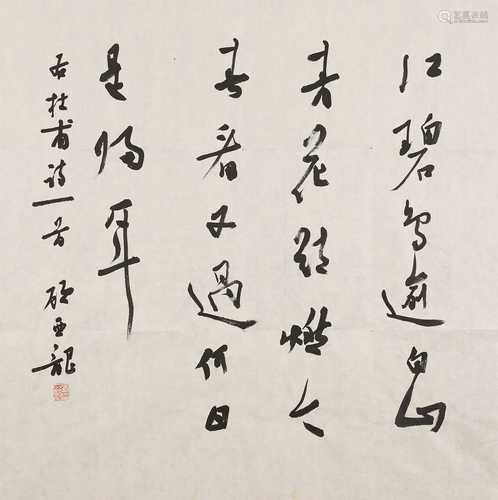 江碧鸟逾白山
青花欲燃今
春看又过何日
是归年
右杜甫诗一首 顾亚龙